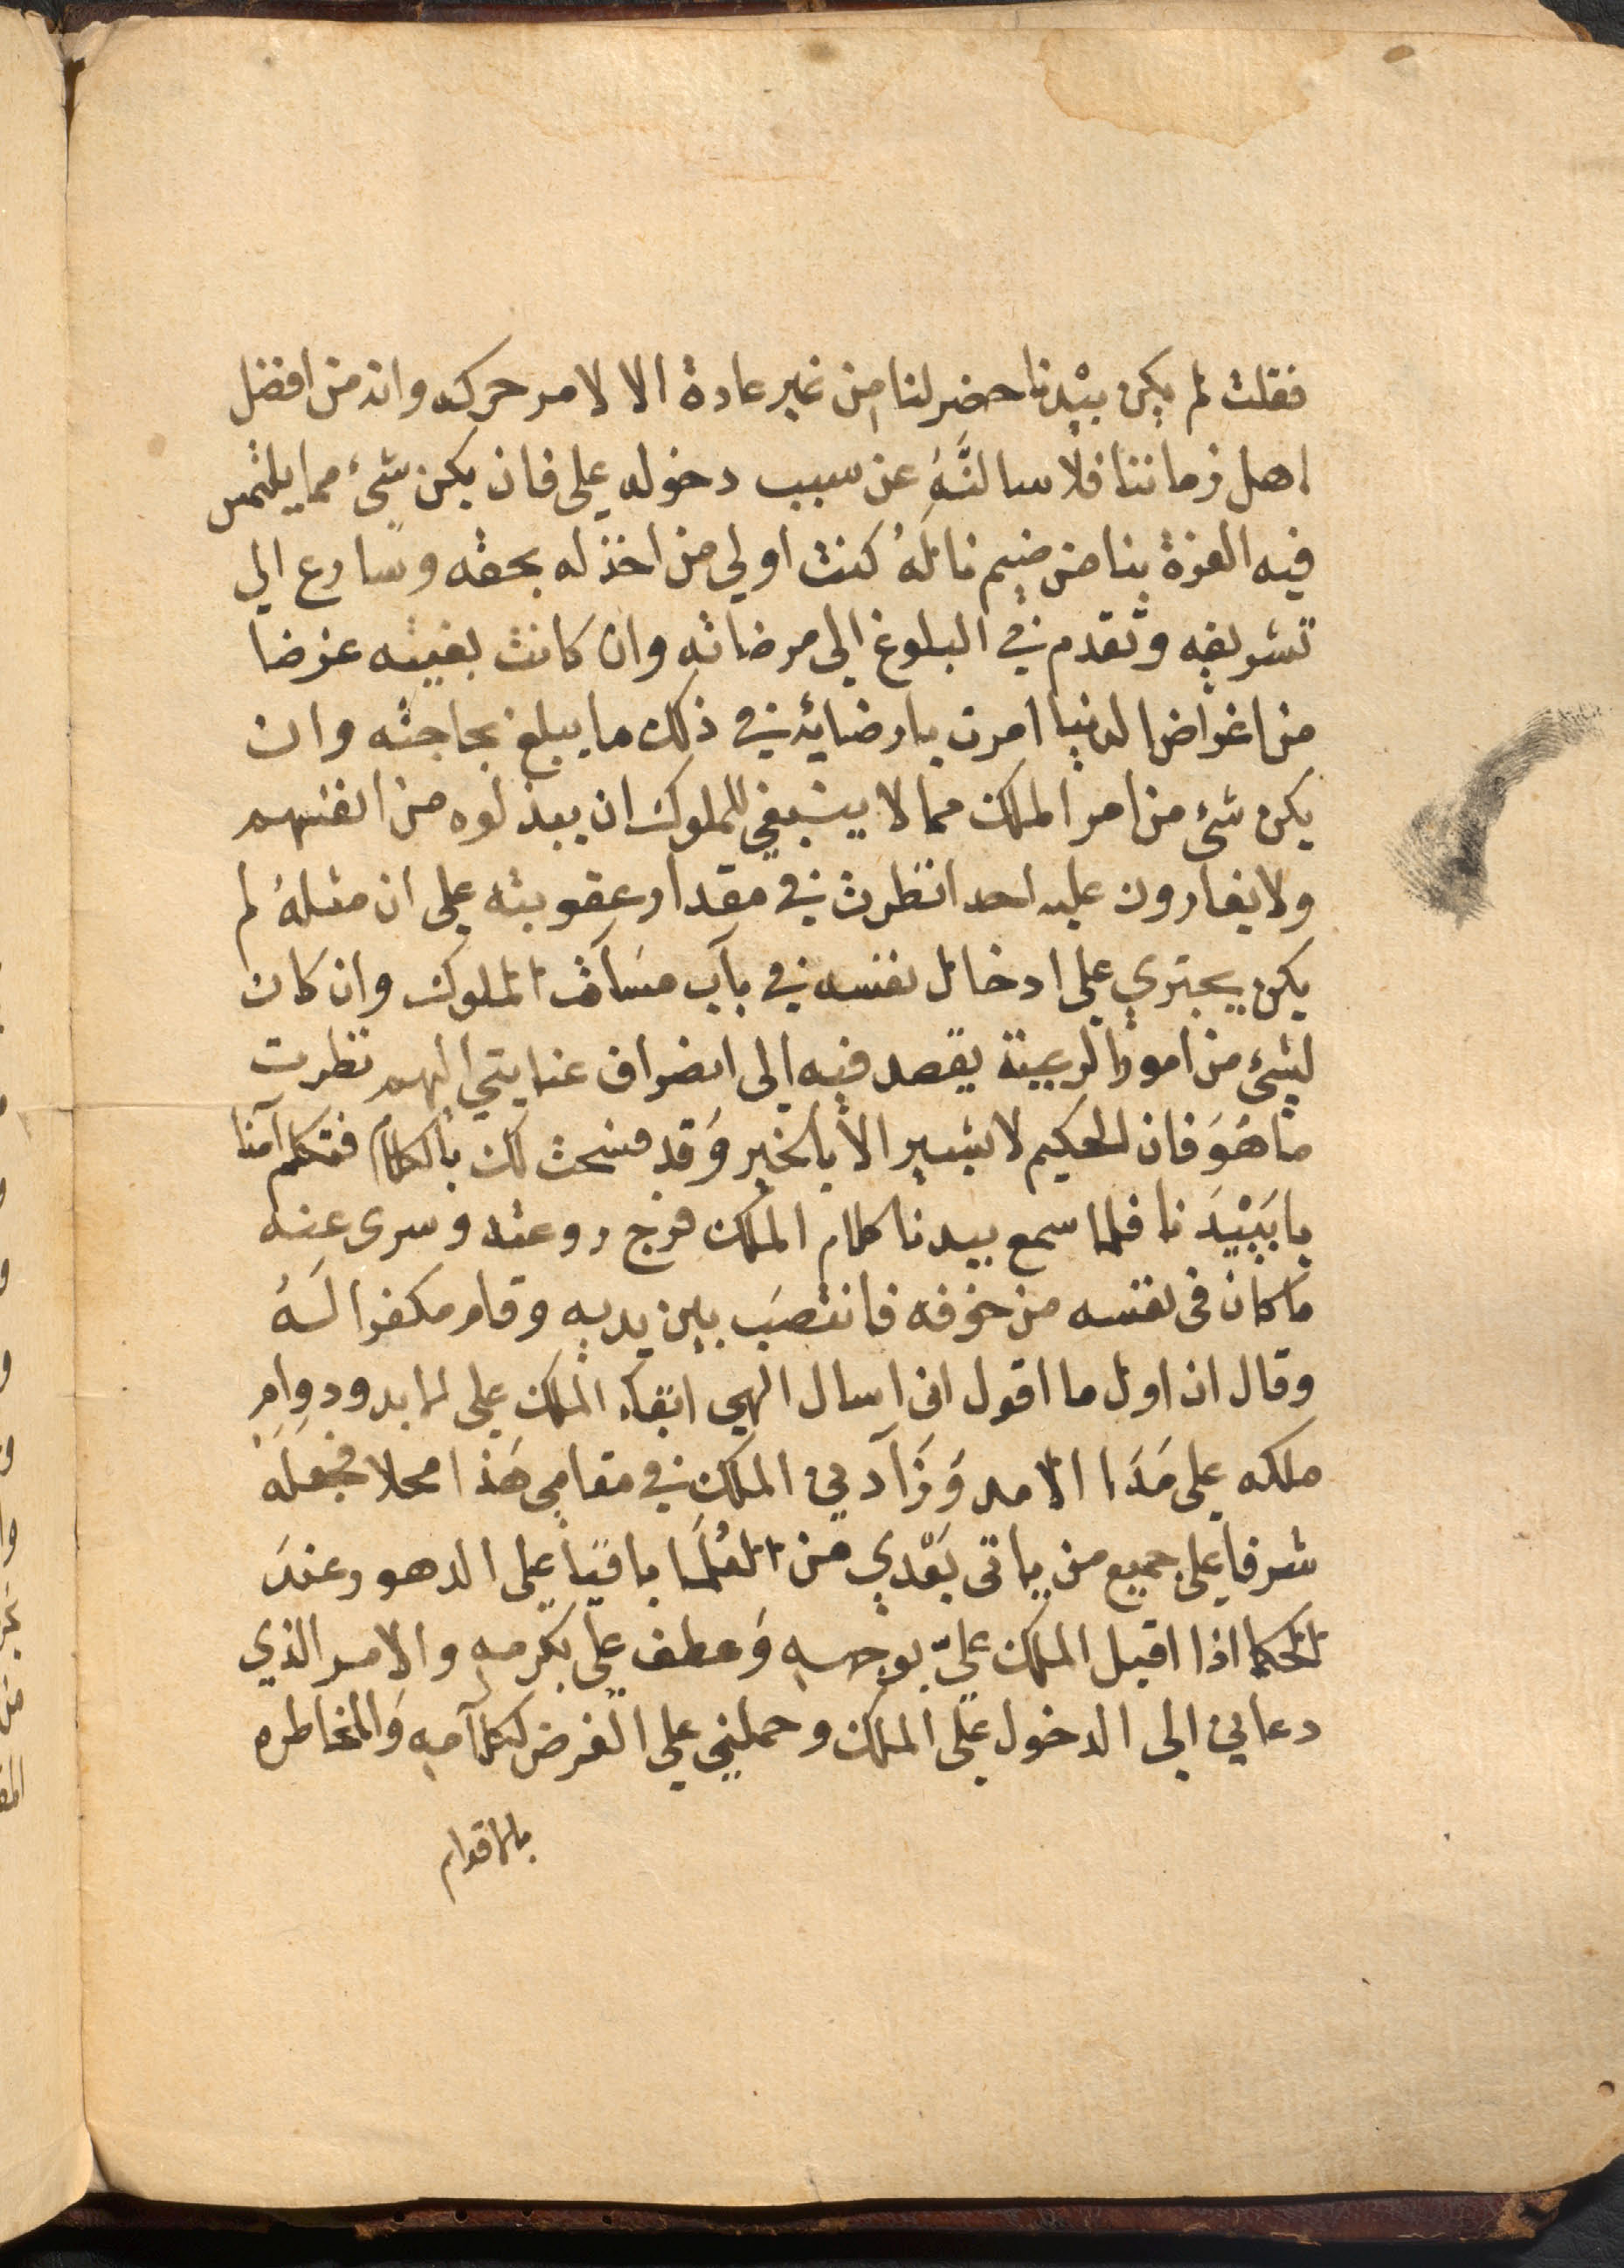 فقلت لم يكن بيْدنا حضر لنا من غير عادة الا لامر حركه وانه من افضل
اهل زماننا فلا سالنَّهُ عن سبب دخوله علي فان يكن شئ مما يلتمس
فيه العزة بنا من ضيم نالهُ كنت اولي من اخذ له بحقه وسارع الي
تشريفه وتقدم في البلوغ الى مرضاته وان كانت بغيته عرضا
من اغراض الدنيا امرت بارضايه في ذلك ما يبلغ بحاجته وان
يكن شئ من امر الملك مما لا ينبغي للملوك ان يبذلوه من انفسهم
ولا يغارون عليه احد انظرت في مقدار عقوبته على ان مثلهُ لم
يكن يجتري علي ادخال نفسه في بآب مسَآلة الملوك وان كان
لشئ من امور الرعية يقصد فيه الى انصراف عنايتي اليهم نظرت
ما هَوَ فان الحكيم لا يشير الا بالخير وَقد فسحت لك بالكلام فتكلم آمنا
يا بَيْدَنا فلما سمع بيدنا كلام الملك فرج روعته وسرى عنه
ما كان فى نفسه من خوفه فانتصبَ بين يديه وقام مكفرا لَهُ
وقال ان اول ما اقول انى اسال الهي ابقاء الملك على الابد ودوامِ
ملكه علي مَدَا الامد وَزَآدني الملك في مقامي هَذا محلا فجعلَه
شرفا على جميع من ياتى بَعْدي من العُلَمَا باقيًا على الدهور عندَ
الحكما اذا اقبل الملك عليّ بوجهه وَعطف علي بكرمه والامر الذي
دعاني الى الدخول على الملك وحملني علي الغرض لكلآمه وَالمخاطره
بالاقوام